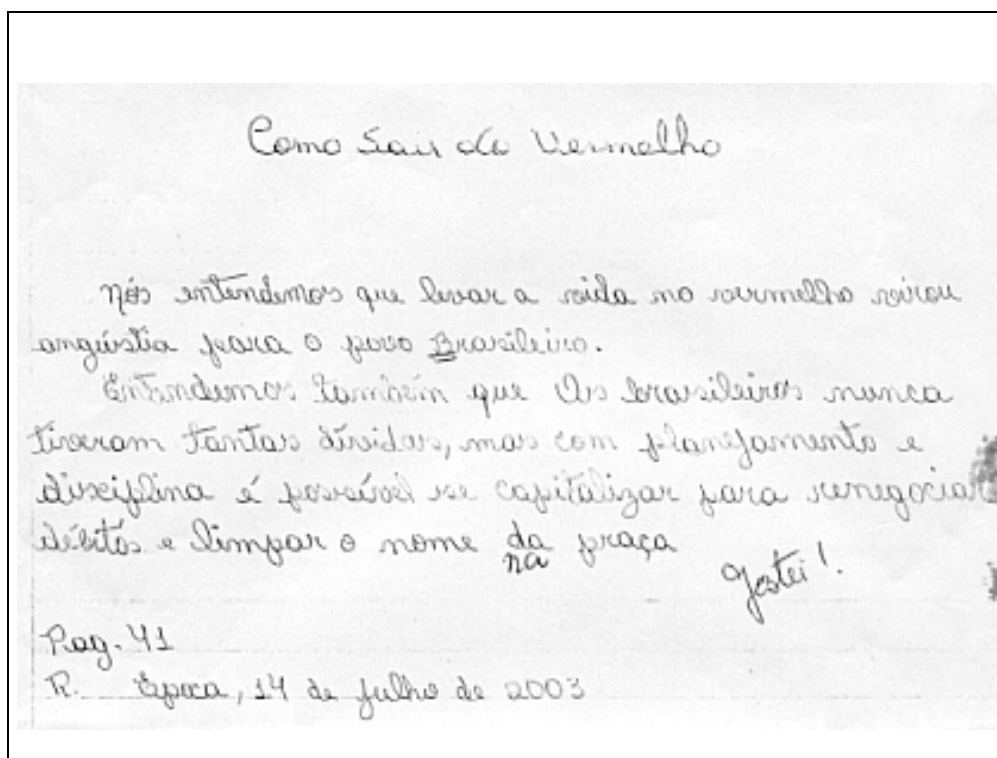 Como Sair do Vermelho
Nós entendemos que levar a vida no vermelho virou
angústia para o povo Brasileiro.
Entendemos também que Os brasileiros nunca
tiveram tantas dívidas, mas com planejamento e
disciplina é possível se capitalizar para renegociar
débitos e limpar o nome da praça
na
Gostei!
Pag. 41
R. Época, 14 de julho de 2003